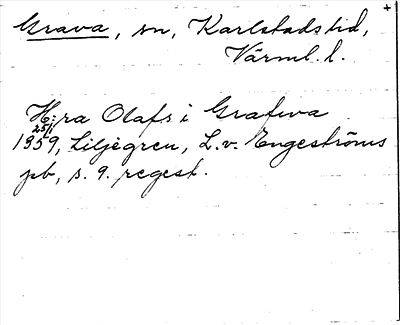 Grava, sn, Karlstads tid,
Värml. l.
H:ra Olafs i Grafwa
25/1
1359, Liljegren, L. v. Engeströms
pb, s. 9. regest.